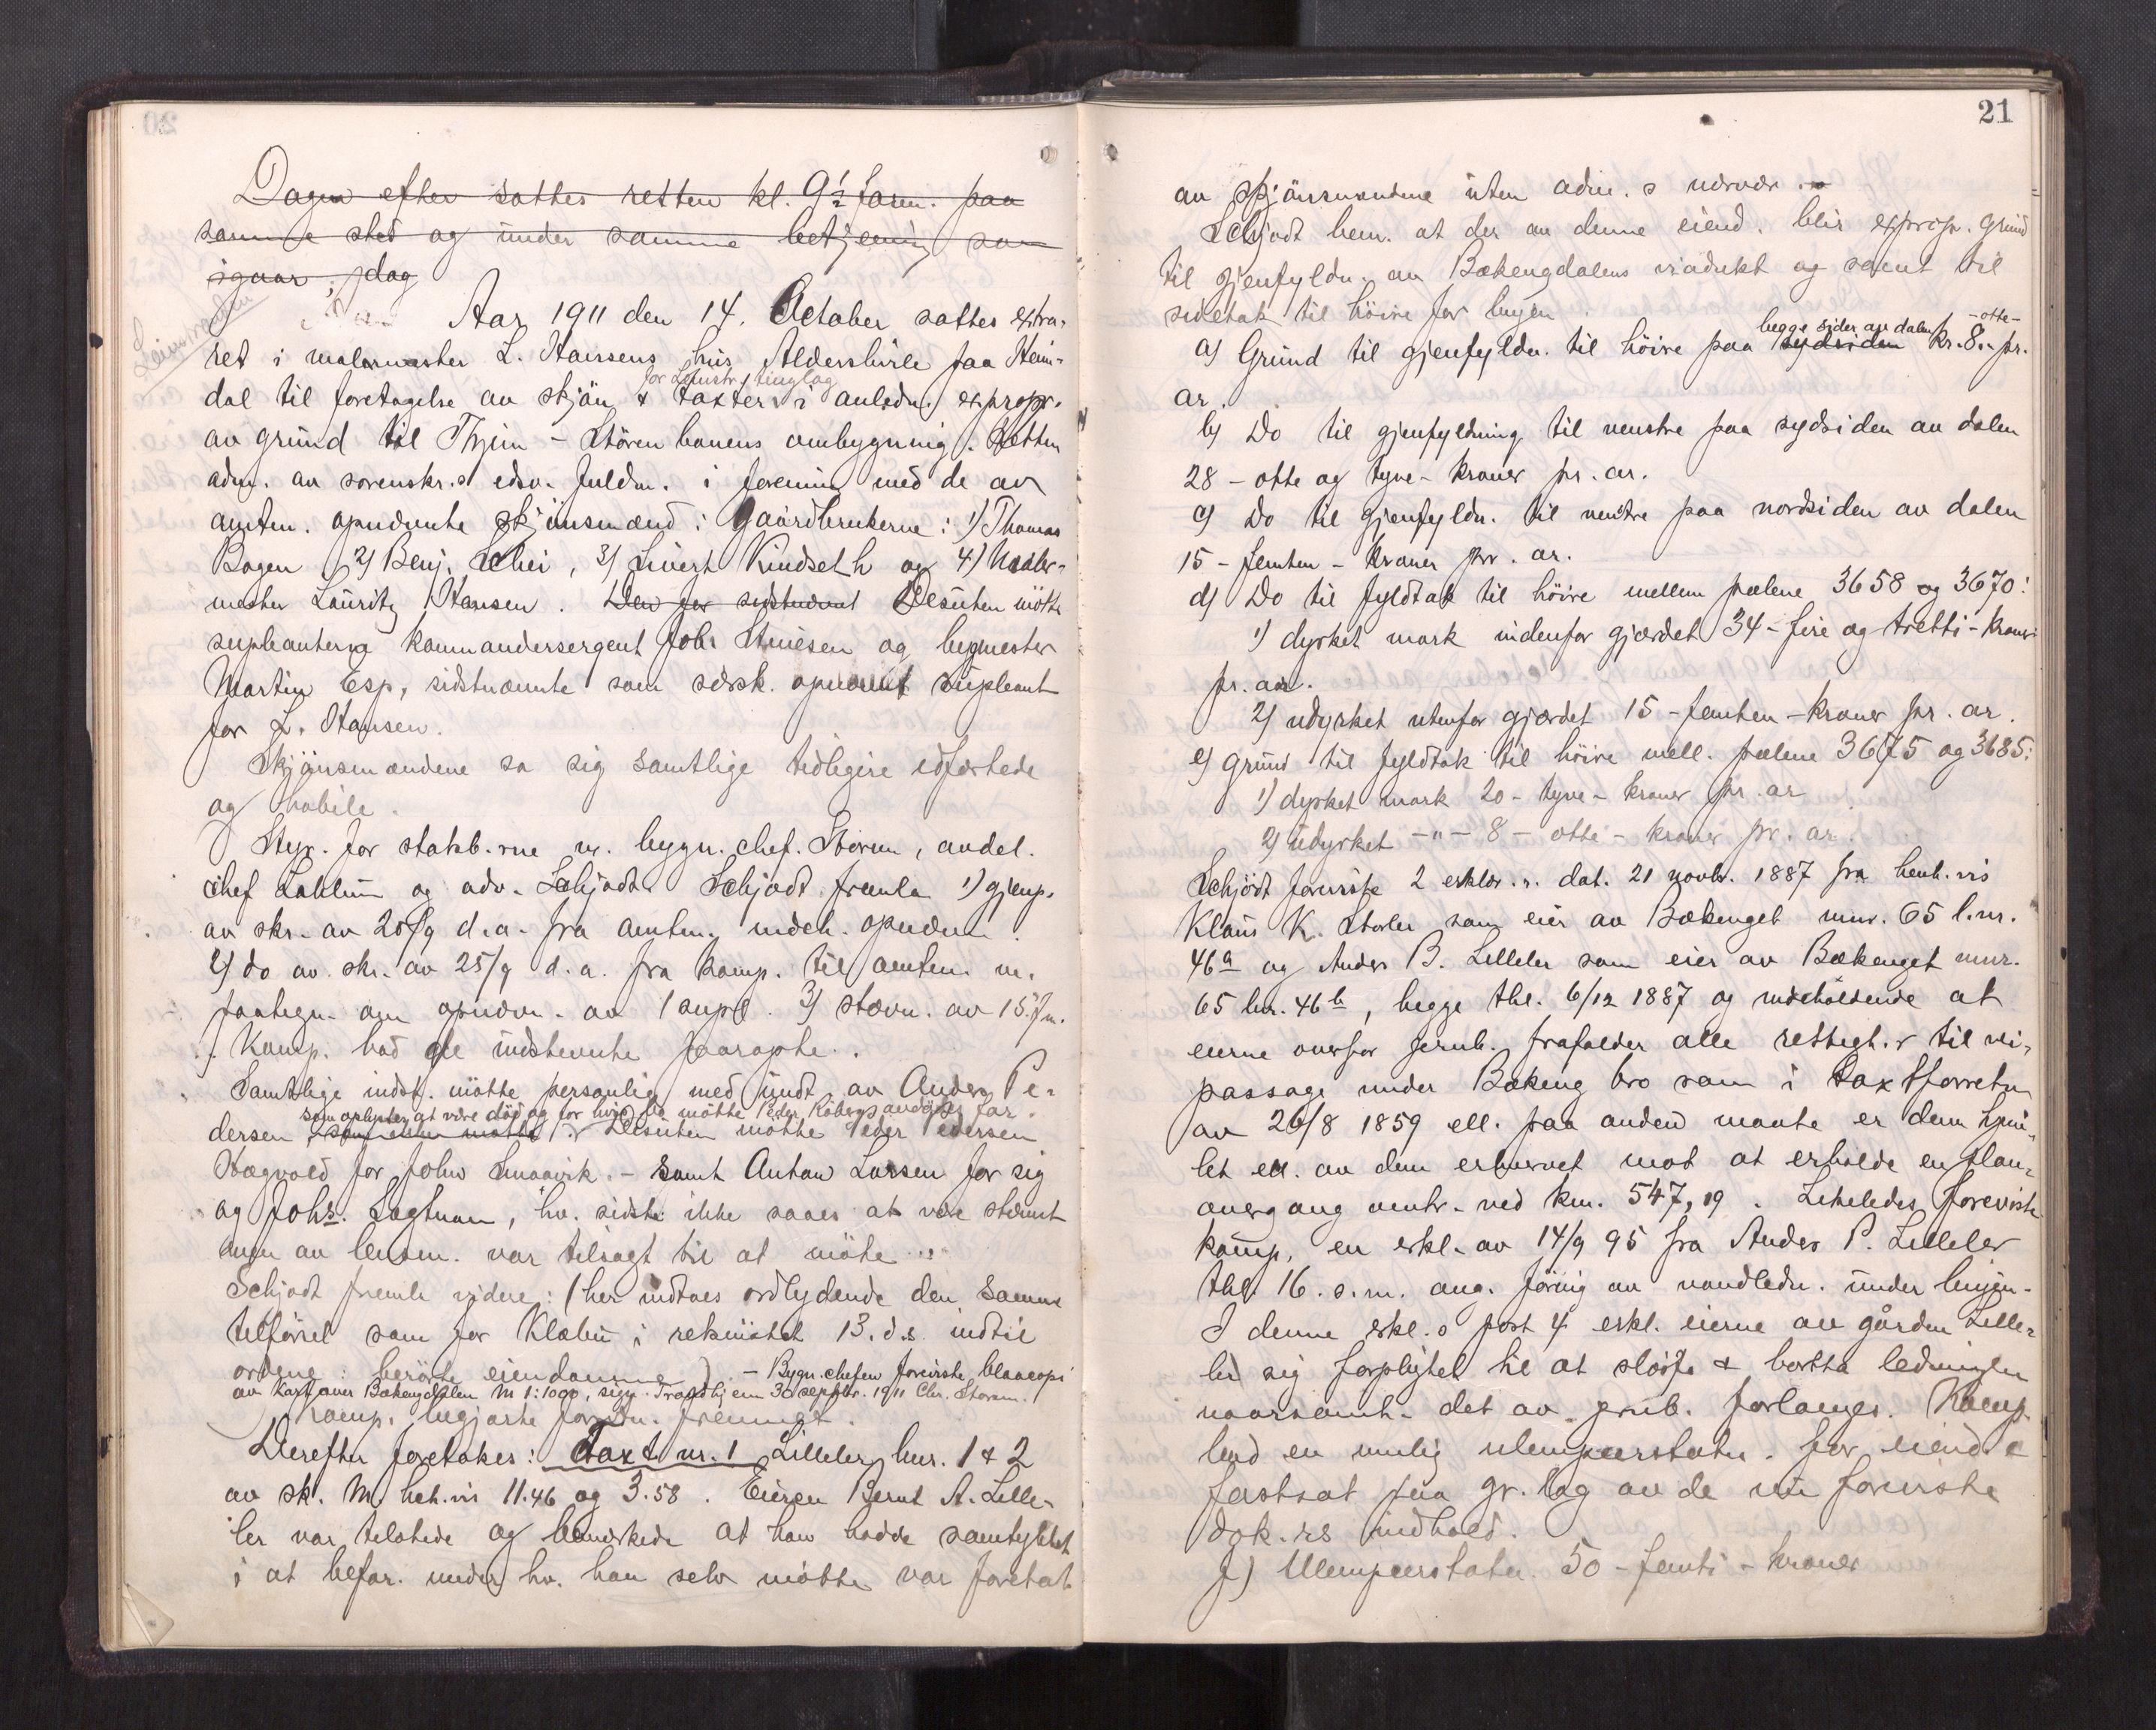 Dagen efter sattes retten kl. 9½ form. paa
samme sted og under samme betjening som
igaar; idag
Leinstranden
Aar 1911 den 14. October sattes extra-
ret i malermester L. Hansens hus Aldershvile paa Heim-
for Leinstr. tinglag
dal til foretagelse av skjön & taxter i anledn. expropr.
av grund til Thjem - Störenbanens ombygning. Retten
adm. av sorenskr.s edsv. fuldm. i forening med de av
amtm. opnævnte skjönsmænd: gaardbrukerne: 1) Thomas
Bogen 2) Benj. Schei, 3) Sivert Kindseth og 4) maler-
mester Lauritz Hansen. Den for sidstnævnt Desuten mötte
supleanterne kommandersergent Johs Struesen og bygmester
Martin Esp, sidstnævnte som særsk. opnævnt supleant
for L. Hansen.
Skjönsmændene sa sig samtlige tidligere edfæstede
og habile.
Styr. for statsb.rne v. bygn.chef. Storm, avdel.
chef Lahlum og adv. Schjödt. Schjödt fremla 1) gjenp.
av skr. av 20/9 d.a. fra amtm. indeh. opnævn.
2) do av skr. av 25/9 d.a. fra komp. til amtm. m.
paategn. om opnævn. av 1 supl. 3) stævn. av 15. f.m.
Komp. bad de indstevnte paaropte.
Samtlige indst. mötte personlig med undt. av Anders Pe-
som oplystes at være död og for hvis bo mötte Peder
dersen som ikke mötte. Desuten mötte Peder Pedersen
Hægvold for John Smaavik. - samt Anton Larsen for sig
og Johs. Lagtuan, hv. sidste ikke saaes at være stævnt
men av lensm. var tilsagt til at möte.
Schjödt fremla videre: (her indtaes ordlydende den samme
tilförsel som for Klæbu i retsmötet 13. d.s. indtil
ordene: berörte eiendomme). - Bygn.chefen foreviste blaacopi
av kart over Bækengdalen M 1:1000, sign. Trondhjem 30 septbr. 1911 Chr. Storm.
Komp. begjærte forretn. fremmet.
Derefter foretokes: Taxt nr. 1 Lilleler bnr. 1 & 2
av sk. M. hch.vis 11.46 og 3.58. Eieren Bernt A. Lille-
ler var tilstede og bemerkede at han hadde samtykket
i at befar. under hv. han selv mötte var foretat
21
av skjönsmændene uten adm.s nærvær.
Schjödt bem. at der av denne eiend. blir exprop. grund
til gjenfyldn. av Bækengdalens viadukt og samt til
sidetak til höire for linjen.
begge sider av dalen - otte -
a) Grund til gjenfyldn. til höire paa sydsiden kr. 8.- pr.
ar.
b) Do til gjenfyldning til venstre paa sydsiden av dalen
28 - otte og tyve - kroner pr. ar.
c) Do til gjenfyldn. til venstre paa nordsiden av dalen
15 - femten - kroner pr. ar.
d) Do til fyldtak til höire mellem pælene 3658 og 3670:
1) dyrket mark indenfor gjærdet 34 - fire og tretti - kroner
pr. ar.
2) udyrket utenfor gjærdet 15 - femten - kroner pr. ar.
e) Grund til fyldtak til höire mell. pælene 3675 og 3685:
1) dyrket mark 20 - tyve - kroner pr. ar
2) udyrket -"- 8 - otte - kroner pr. ar.
Schjödt foreviste 2 erklær.r. dat. 21 novbr. 1887 fra henh.vis
Klaus K. Storler som eier av Bækenget mnr. 65 l.nr.
46a og Anders B. Lilleler som eier av Bækenget mnr.
65 lnr. 46b, begge thl. 6/12 1887 og indeholdende at
eierne overfor jernb. frafalder alle rettigh.r til vei-
passage under Bækeng bro som i taxtforretn
av 26/8 1859 ell. paa anden maate er dem hjem-
let ell. av dem erhvervet mot at erholde en plan-
overgang omtr. ved km. 547,19. Likeledes foreviste
komp. en erkl. av 14/9 95 fra Anders P. Lilleler
thl. 16. s.m. ang. föring av vandledn. under linjen.
I denne erkl.s post 4 erkl. eierne av gården Lille-
ler sig forpligtet til at slöife & bortta ledningen
naarsomh. det av jernb. forlanges. Komp.
bad en mulig ulempeerstatn. for eiend.
fastsat paa gr.lag av de nu foreviste
dok.rs indhold.
f) Ulempeerstatn. 50 - femti - kroner